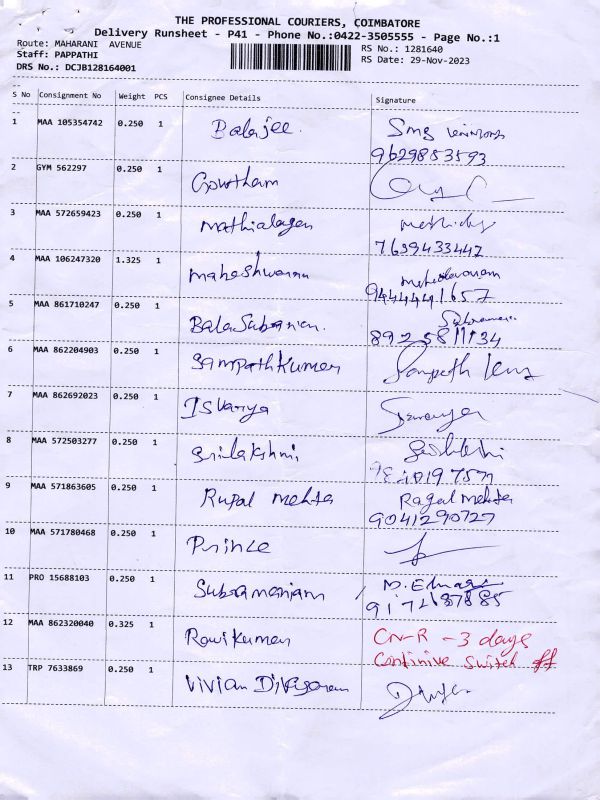 THE PROFESSIONAL COURIERS, COIMBATORE
Delivery Runsheet - P41 - Phone No.:0422-3505555 - Page No.:1
Route: MAHARANI AVENUE
RS No.: 1281640
Staff: PAPPATHI
RS Date: 29-Nov-2023
DRS No.: DCJB128164001
S No Consignment No Weight PCS Consignee Details Signature
1 MAA 105354742 0.250 1 Balajee. Sms
9629853593
2 GYM 562297 0.250 1 Gowtham
3 MAA 572659423 0.250 1 Mathialagen
7639433442
4 MAA 106247320 1.325 1 Maheshwaran
9444441657
5 MAA 861710247 0.250 1 BalaSubramian.
8925811134
6 MAA 862204903 0.250 1 SampathKumar Sampath
7 MAA 862692023 0.250 1 ISvarya
8 MAA 572503277 0.250 1 Srilakshmi
9 MAA 571863605 0.250 1 Rupal Mehta Ragal Mehta
9041290727
10 MAA 571780468 0.250 1 Prince
11 PRO 15688103 0.250 1 Subramaniam
12 MAA 862320040 0.325 1 Ravikumar CN-R - 3 days
Continive Switch off
13 TRP 7633869 0.250 1 Vivian Divagaran